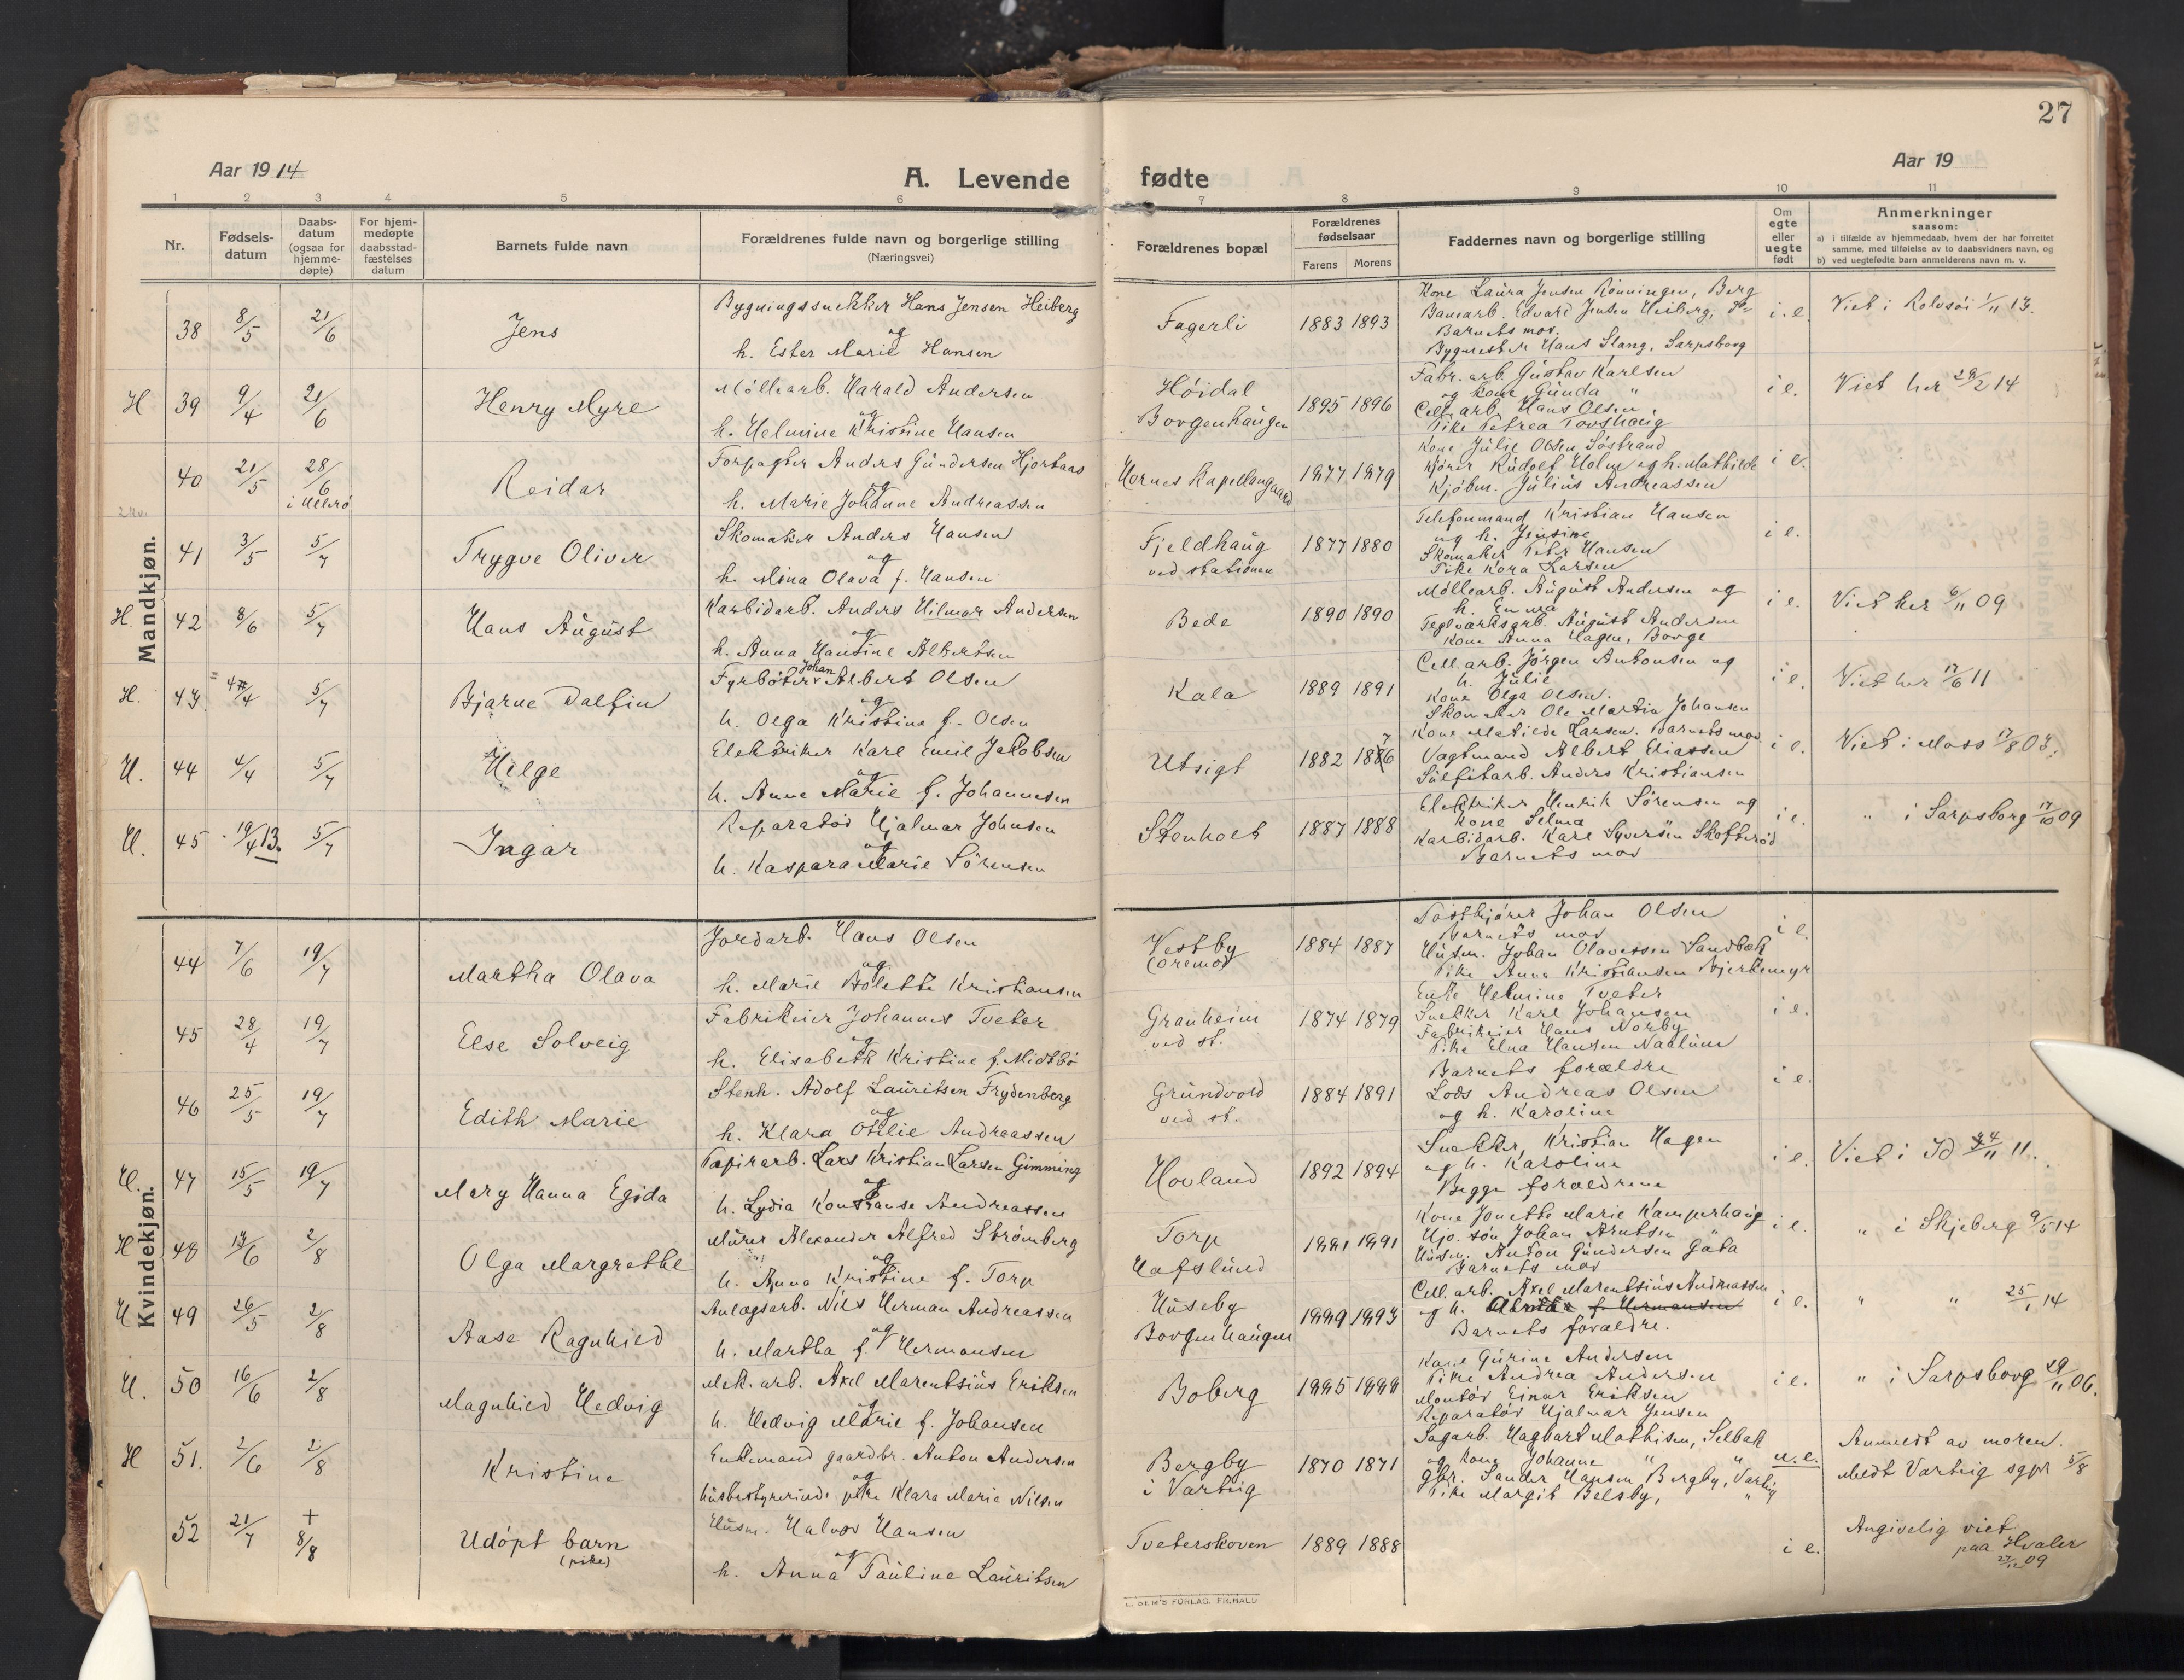 27
Aar 1914
A. Levende fødte
Aar 19
1 2 3 4 5 6 7 8 9 10 11
Nr.
Fødsels-datum
Daabs-datum (ogsaa for hjemme-døpte)
For hjem-medøpte daabsstad-fæstelses datum
Barnets fulde navn
Forældrenes fulde navn og borgerlige stilling (Næringsvei)
Forældrenes bopæl
Forældrenes fødselsaar
Farens Morens
Faddernes navn og borgerlige stilling
Om egte eller uegte født
Anmerkninger saasom:
a) i tilfælde av hjemmedaab, hvem der har forrettet samme, med tilføielse av to daabsvidners navn, og
b) ved uegtefødte barn anmelderens navn m. v.
Mandkjøn.
38 8/5 21/6 Jens
Bygningssnekker Hans Jensen Heiberg
og
h. Ester Marie Hansen
Fagerli 1883 1893
Kone Laura Jensen Rönningen, Berg
Banearb. Edvard Jensen Heiberg, do
Barnets mor.
Bygmester Hans Slang, Sarpsborg
i. e. Viet i Rolvsöi 1/11 13.
H 39 9/4 21/6 Henry Myre
Möllearb. Harald Andersen
og
h. Helmine Kristine Hansen
Høidal
Borgenhaugen
1895 1896
Fabr. arb. Gustav Karlsen
og kone Gunda "
Cell. arb. Hans Olsen
Pike Petrea Tovshaug
i e. Viet her 28/2 14
40 21/5 28/6 i Ullerö Reidar
Forpagter Anders Gundersen Hjortaas
og
h. Marie Johanne Andreassen
Hornes Kapellangaard 1877 1879
Kone Julie Olsen, Söstrand
Kjörer Rudolf Holm og h. Mathilde
Kjöbm. Julius Andreassen
i e.
41 3/5 5/7 Trygve Oliver
Skomaker Anders Hansen
og
h. Mina Olava f. Hansen
Fjeldhaug
ved stationen
1877 1880
Telefonmand Kristian Hansen
og h. Jensine
Skomaker Peter Hansen
Pike Kora Larsen
i e.
H. 42 8/6 5/7 Hans August
Karbidarb. Anders Hilmar Andersen
og
h. Anna Hantine Albertsen
Bede 1890 1890
Möllearb. August Andersen og
h. Emma
Teglværksarb. August Andersen
Kone Anna Hagen, Borge
i e. Viet her 6/11 09
H. 43 4/4 5/7 Bjarne Dalfin
Fyrböter Johan Albert Olsen
og
h. Olga Kristine f. Olsen
Kala 1889 1891
Cell. arb. Jörgen Antonsen og
h. Julie
Kone Olga Olsen.
Skomaker Ole Martin Johansen
i e. Viet her 17/6 11
H. 44 4/4 5/7 Helge
Elektriker Karl Emil Jakobsen
og
h. Anne Marie f. Johannesen
Utsigt 1882 1886 7
Kone Matilde Larsen. Barnets mor.
Vagtmand Albert Eliassen
Sulfitarb. Anders Kristiansen
i e. Viet i Moss 17/8 03.
H. 45 19/4 13. 5/7 Ingar
Reparatör Hjalmar Johnsen
og
h. Kaspara Marie Sörensen
Stenholt 1887 1888
Elektriker Henrik Sörensen og
kone Selma
Karbidarb. Karl Syversen Skofteröd
Barnets mor
i e. " i Sarpsborg 17/10 09
Kvindekjøn.
44 7/6 19/7 Martha Olava
Jordarb. Hans Olsen
og
h. Marie Bolette Kristiansen
Vestby
(Oremo)
1884 1887
Postkjörer Johan Olsen
Barnets mor
Husm. Johan Olavessen Sandbæk
Pike Anna Kristiansen Bjerkemyr
i e.
45 28/4 19/7 Else Solveig
Fabrikeier Johannes Tveter
og
h. Elisabeth Kristine f. Midtbö
Granheim
ved st.
1874 1879
Enke Helmine Tveter
Snekker Karl Johansen
Fabrikeier Hans Norby
Pike Elna Hansen Naalum
i e.
46 25/5 19/7 Edith Marie
Stenh. Adolf Lauritsen Frydenberg
og
h. Klara Otilie Andreassen
Grundvold
ved st.
1884 1891
Barnets forældre
Lods Andreas Olsen
og h. Karoline
i e.
H. 47 15/5 19/7 Mary Hanna Egida
Papirarb. Lars Kristian Larsen Gimming
og
h. Lydia Konstanse Andreassen
Hovland 1892 1894
Snekker Kristian Hagen
og h. Karoline
Begge forældrene
i e. Viet i Id 24/11 11.
H 48 13/6 2/8 Olga Margrethe
Murer Alexander Alfred Strömberg
og
h. Anna Kristine f. Torp
Torp
Hafslund
1881 1891
Kone Jonette Marie Kamperhaug
Hjo. sön Johan Arntsen
Husm. Anton Gundersen Gata
Barnets mor
i e. " i Skjeberg 9/5 14
H 49 26/5 2/8 Aase Ragnhild
Anlægsarb. Nils Herman Andreassen
og
h. Martha f. Hermansen
Huseby
Borgenhaugen
1889 1893
Cell. arb. Axel Marentsius Andreassen
og h. f. Hermansen
Barnets forældre.
i e. " " 25/1 14
H. 50 16/6 2/8 Magnhild Hedvig
Mek. arb. Axel Marentsius Eriksen
og
h. Hedvig Marie f. Johansen
Boberg 1885 1888
Kone Gurine Andersen
Pike Andrea Andersen
Montör Einar Eriksen
Reparatör Hjalmar Jensen
i e. " i Sarpsborg 29/11 06.
H 51. 2/6 2/8 Kristine
Enkemand gaardbr. Anton Andersen
og
husbestyrerinde pike Klara Marie Nilsen
Bergby
i Varteig
1870 1871
Sagarb. Hagbart Mathisen, Selbak
og kone Johanne " "
Gbr. Sander Hansen, Bergby, Varteig
Pike Margit Belsby, "
u. e. Anmeldt av moren.
Meldt Varteig sgpr 5/8
52 21/7 + 8/8 Udöpt barn
(pike)
Husm. Halvor Hansen
og
h. Anna Pauline Lauritsen
Tveterskoven 1889 1888
i e. Angivelig viet
paa Hvaler
27/12 09
E. SEM'S FORLAG, FR.HALD